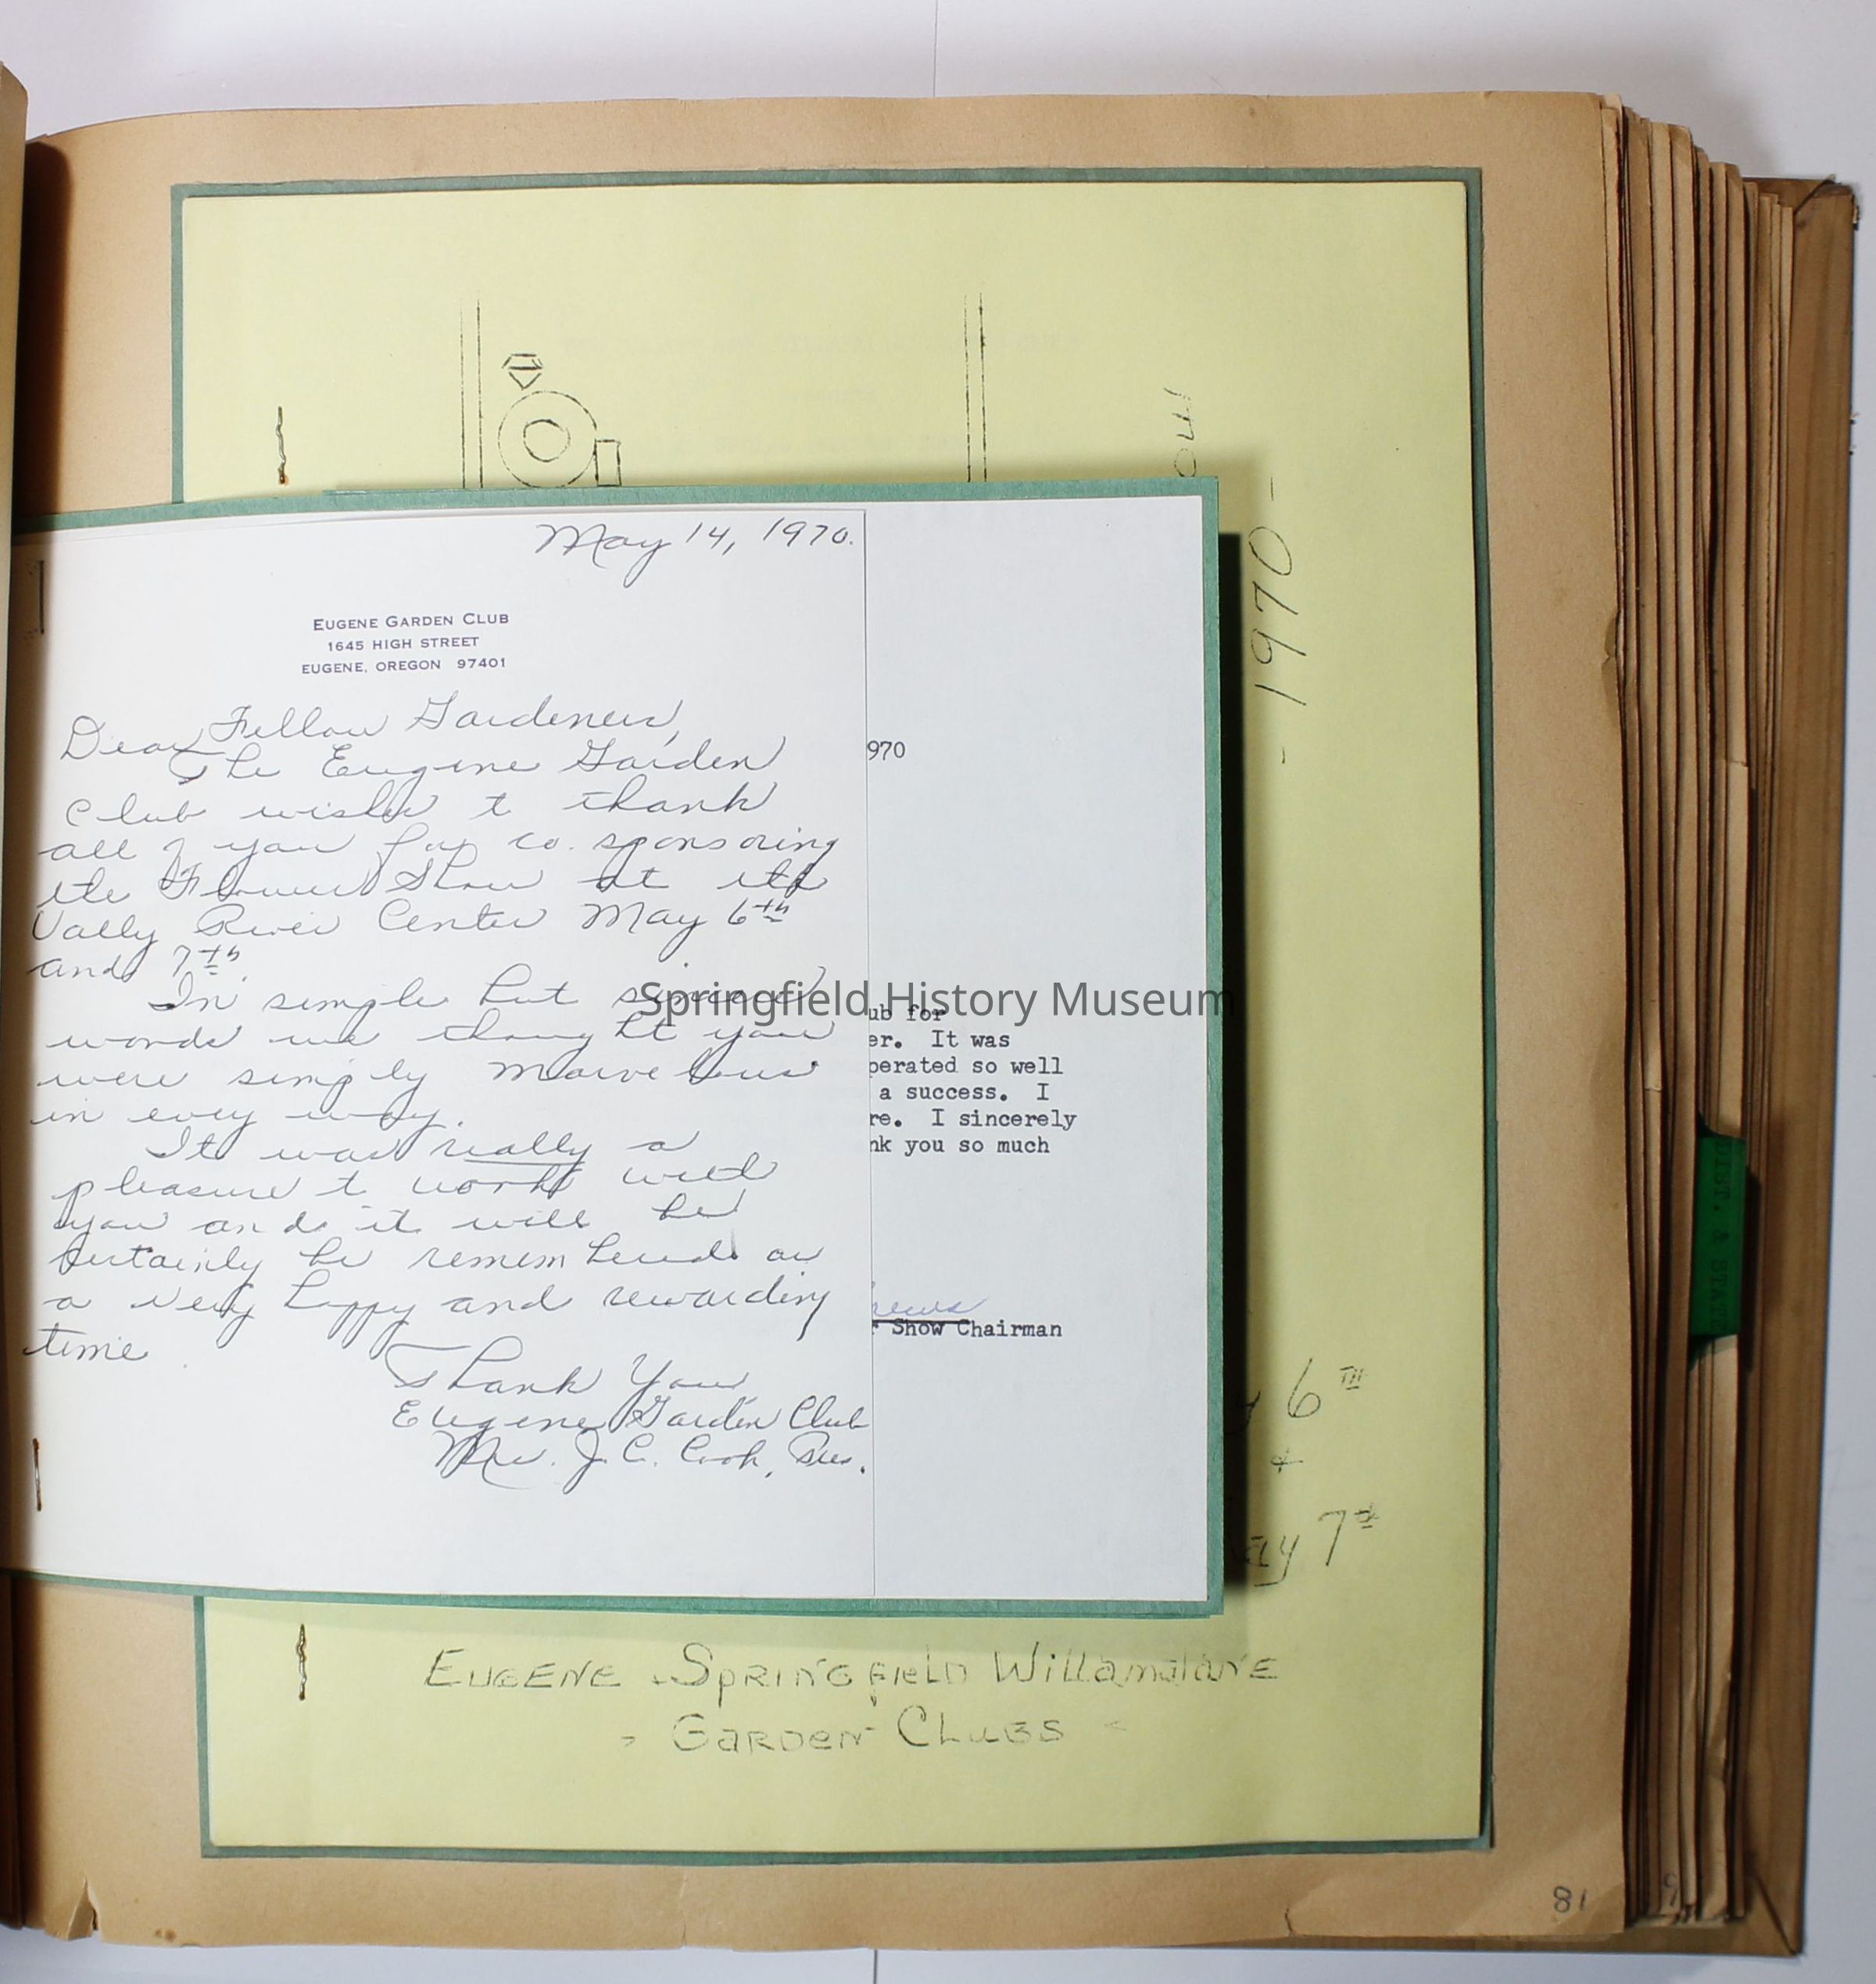 May 14, 1970.
EUGENE GARDEN CLUB
1645 HIGH STREET
EUGENE, OREGON 97401
Dear Fellow Gardeners,
The Eugene Garden
Club wishes to thank
all of you for co. sponsoring
the Flower Show at the
Vally River Center May 6th
and 7th.
In simple but sincere
words we thought you
were simply marvelous
in every way.
It was really a
pleasure to work with
you and it will be
certainly be remembered as
a very happy and rewarding
time
Thank You
Eugene Garden Club
Mrs. J. C. Cook, Pres.
970
ub for
er. It was
perated so well
a success. I
re. I sincerely
nk you so much
Show Chairman
- 1970 -
6TH
+
ay 7th
EUGENE - SPRINGFIELD WILLAMALANE
- GARDEN CLUBS -
81
DIST. & STATE
Springfield History Museum